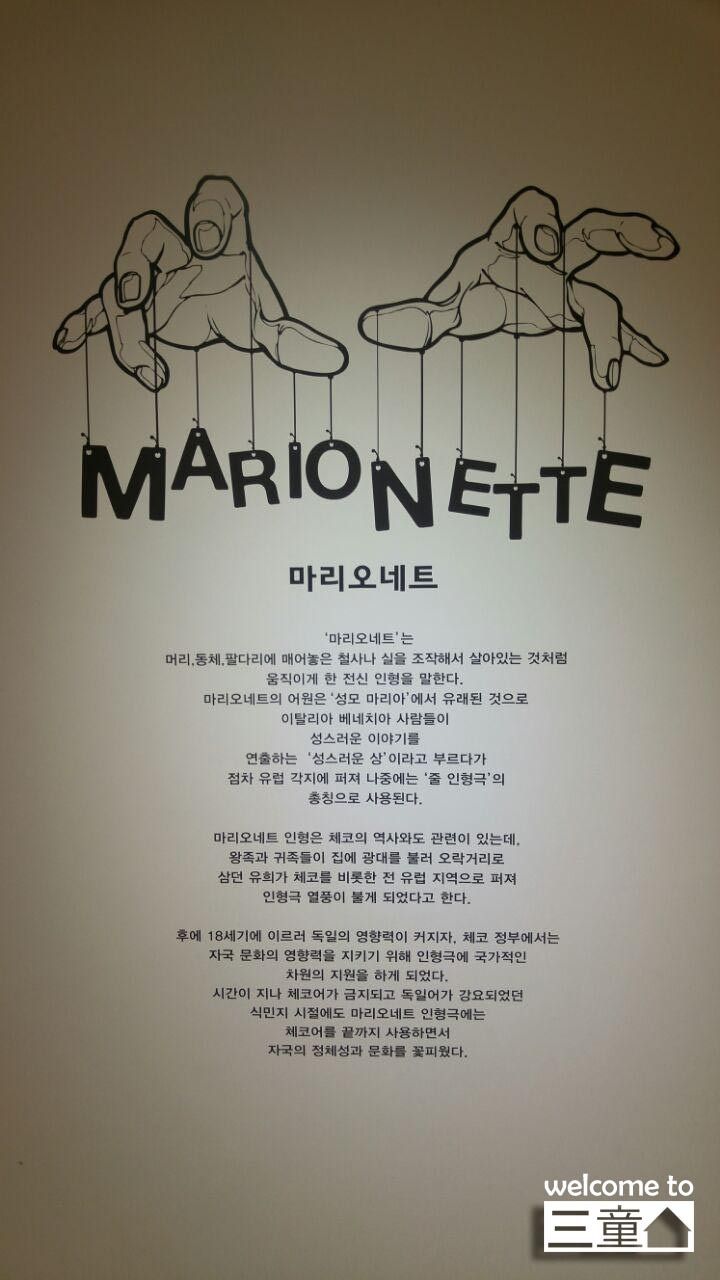 MARIONETTE
마리오네트
‘마리오네트’는
머리,동체,팔다리에 매어놓은 철사나 실을 조작해서 살아있는 것처럼
움직이게 한 전신 인형을 말한다.
마리오네트의 어원은 ‘성모 마리아’에서 유래된 것으로
이탈리아 베네치아 사람들이
성스러운 이야기를
연출하는 ‘성스러운 상’이라고 부르다가
점차 유럽 각지에 퍼져 나중에는 ‘줄 인형극’의
총칭으로 사용된다.
마리오네트 인형은 체코의 역사와도 관련이 있는데,
왕족과 귀족들이 집에 광대를 불러 오락거리로
삼던 유희가 체코를 비롯한 전 유럽 지역으로 퍼져
인형극 열풍이 불게 되었다고 한다.
후에 18세기에 이르러 독일의 영향력이 커지자, 체코 정부에서는
자국 문화의 영향력을 지키기 위해 인형극에 국가적인
차원의 지원을 하게 되었다.
시간이 지나 체코어가 금지되고 독일어가 강요되었던
식민지 시절에도 마리오네트 인형극에는
체코어를 끝까지 사용하면서
자국의 정체성과 문화를 꽃피웠다.
welcome to
三童